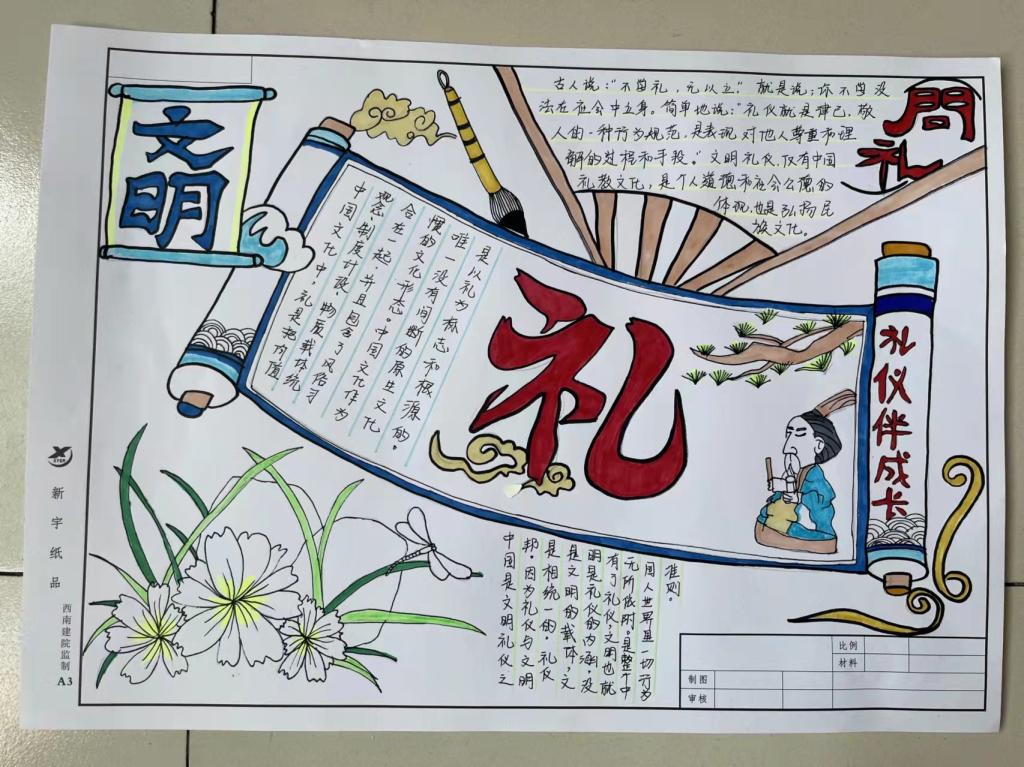 文明
問礼
古人说:"不学礼,无以立。"就是说,你不学没
法在社会中立身。简单地说:"礼仪就是律己、敬
人的一种行为规范,是表现对他人尊重和理
解的过程和手段。"文明礼仪,仅有中国
礼教文化,是个人道德和社会公德的
体现,也是弘扬民
族文化。
中国文化中,礼是把价值
观念、制度计设、物质载体统
合在一起,并且包含了风俗习
惯的文化形态。中国文化作为
唯一没有间断的原生文化
是以礼为标志和根源的。
礼
礼仪伴成长
中国是文明礼仪之
邦。因为礼仪与文明
是相统一的。礼仪
是文明的载体,文
明是礼仪的内涵。没
有了礼仪,文明也就
无所依附。是整个中
国人世界里一切行为
准则。
新宇纸品
西南建院监制
A3
比例
材料
制图
审核